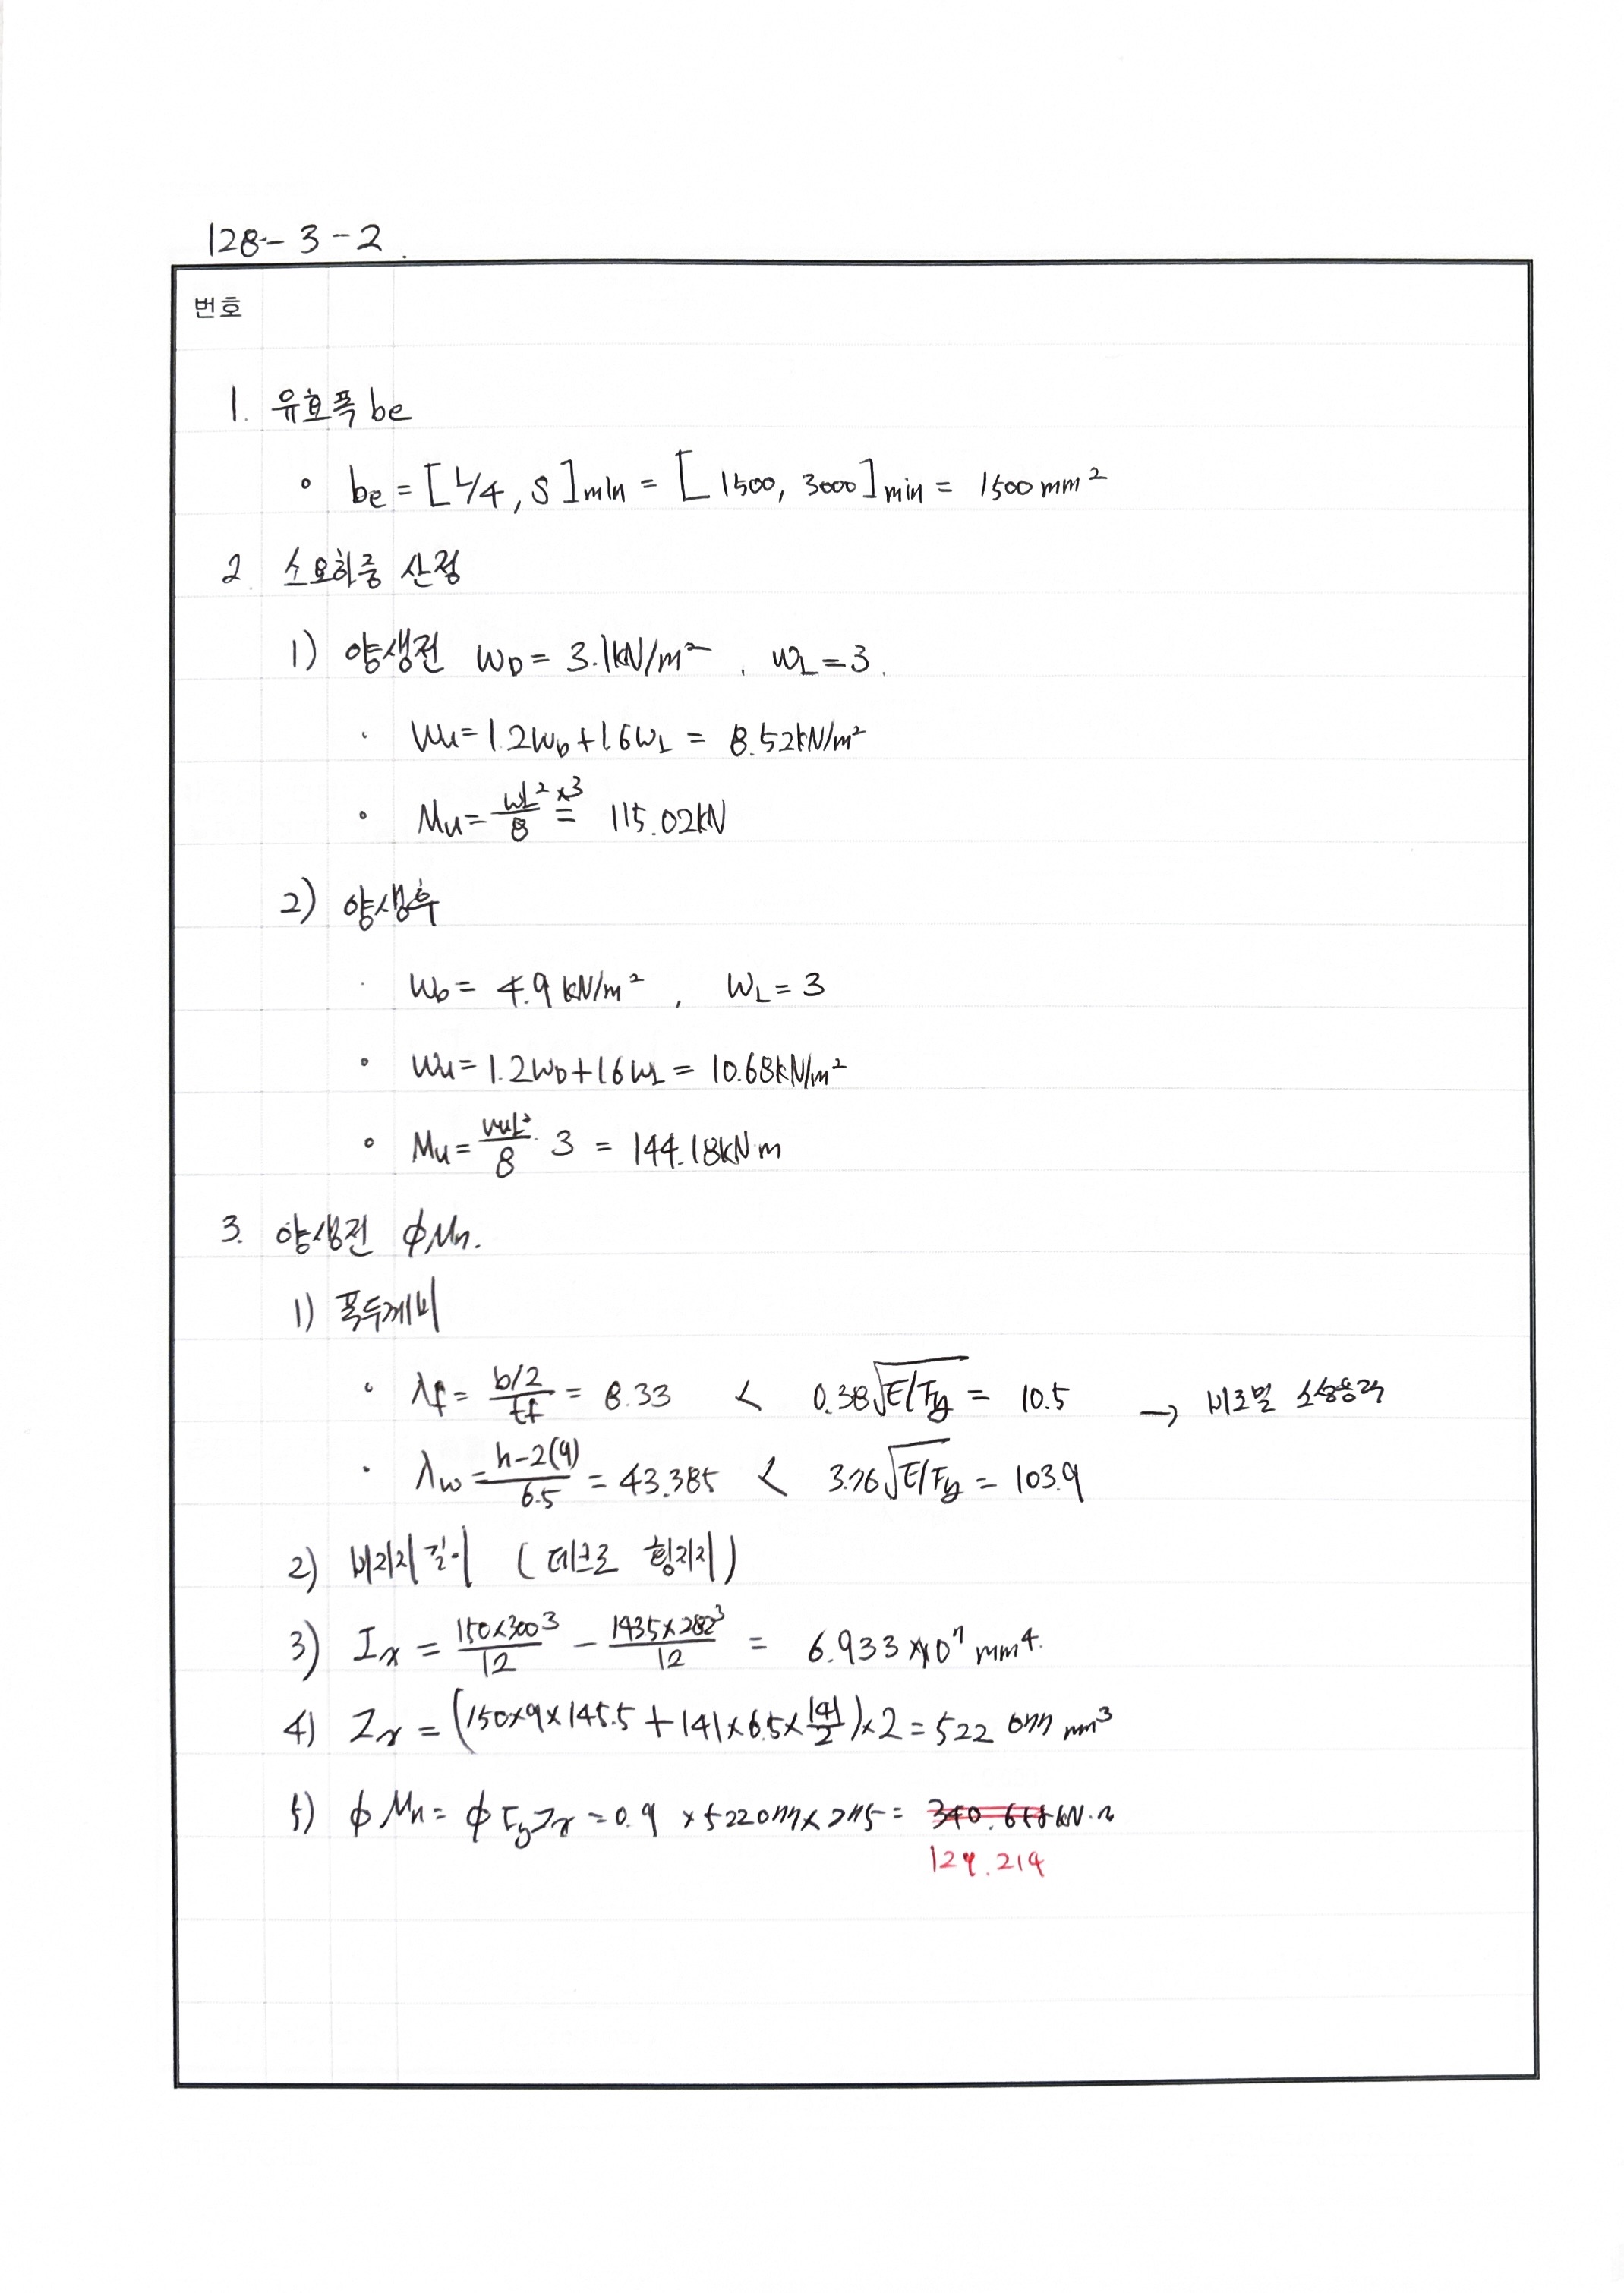 128-3-2.
번호
1. 유효폭 be
∘ be = [L/4, S]min = [1500, 3000]min = 1500mm²
2. 소요하중 산정
1) 양생전 WD = 3.1kN/m², WL=3.
· Wu=1.2WD+1.6WL = 8.52kN/m²
∘ Mu= WL²/8 ×3 = 115.02kN
2) 양생후
· WD= 4.9kN/m², WL=3
∘ Wu=1.2WD+1.6WL= 10.68kN/m²
∘ Mu= WuL²/8 · 3 = 144.18kN·m
3. 양생전 ϕMn.
1) 폭두께비
∘ λf= (b/2)/tf = 8.33 < 0.38√E/Fy = 10.5 → 비조밀 소성응력
· λw= (h-2(9))/6.5 = 43.385 < 3.76√E/Fy = 103.9
2) 비지지길이 (데크로 횡지지)
3) Ix = 150×300³/12 - 143.5×282³/12 = 6.933×10⁷ mm⁴.
4) Zx = (150×9×145.5 + 141×6.5×141/2)×2 = 522 077 mm³
5) ϕMn= ϕFyZx = 0.9 ×522077×275= 340.658kN·m
129.214